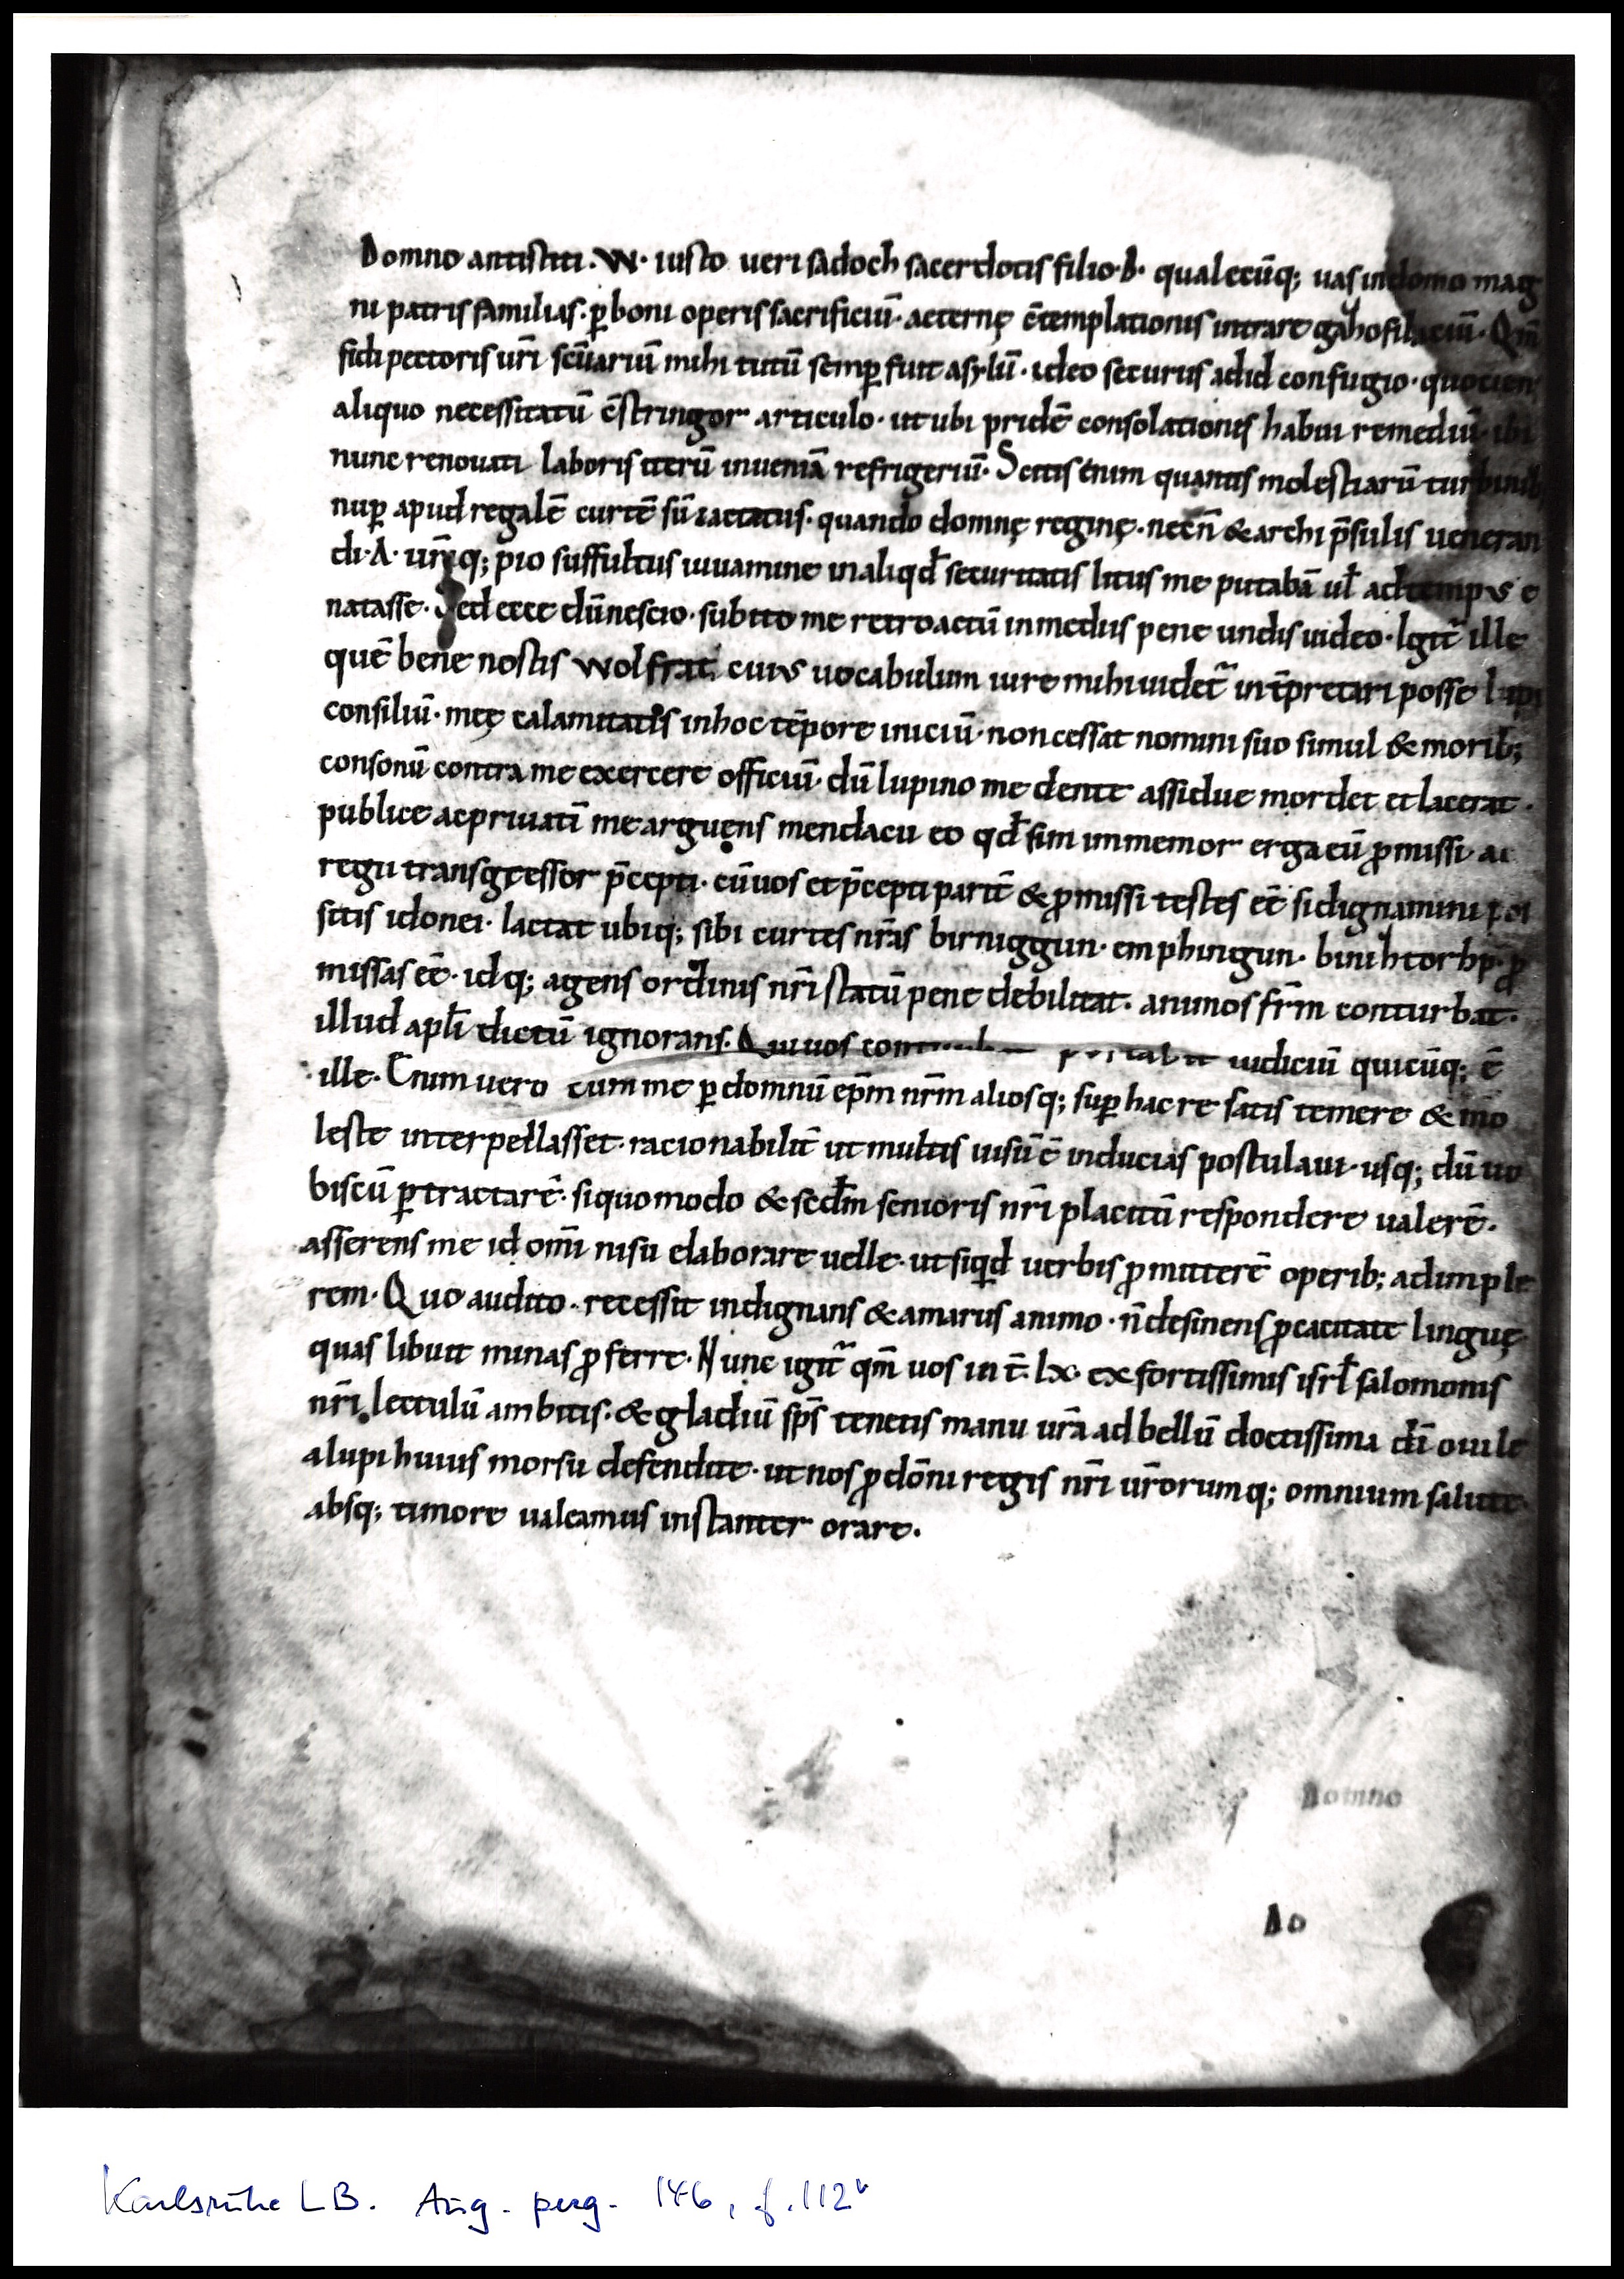 Domno antistiti · W · iusto ueri sadoch sacerdotis filio · b · qualecūq; uas in domo mag
ni patris familias · ꝑ boni operis sacrificiū · aeternę c̄templationis intrare gazhofilaciū · Qm̄
fidi pectoris ur̄i scūariū mihi tutū semꝑ fuit asylū · ideo securus ad id confugio · quocien
aliquo necessitatū c̄stringor articulo · ut ubi pridē consolationis habui remediū · ibi
nunc renouati laboris iterū inueniā refrigeriū · Scitis enim quantis molestiarū turbinib;
nuꝑ apud regalē curtē sū iactatus · quando domnę reginę · necn̄ & archi p̄sulis ueneran
di · A · ur̄iq; pio suffultus iuuamine in aliqd̄ securitatis litus me putabā ul̄ ad tempus e
natasse · Sed ecce dū nescio · subito me retroactū in mediis pene undis uideo · Igit̄ ille
quē bene nostis wolfrat cuius uocabulum iure mihi uidet̄ int̄pretari posse lupi
consiliū · meę calamitatis in hoc tēpore iniciū · non cessat nomini suo simul & morib;
consonū contra me exercere officiū · dū lupino me dente assidue mordet et lacerat ·
publice ac priuatī me arguens mendacii eo qd̄ sim immemor erga eū ꝓmissi ac
regii transgressor p̄cepti · cū uos et p̄cepti paritē & ꝓmissi testes eē si dignamini
sitis idonei · Iactat ubiq; sibi curtes nr̄as birniggun · emphingun · ꝓ
missas eē · idq; agens ordinis nr̄i statū pene debilitat · animos fr̄m conturbat ·
illud apl̄i dictū ignorans · Qui uos portabit iudiciū quicūq; ē
ille · Enimuero cum me ꝑ domnū ep̄m nr̄m aliosq; suꝑ hac re satis temere & mo
leste interpellasset · racionabilit̄ ut multis uisū ē inducias postulaui · usq; dū uo
biscū ꝑtractarē · si quomodo & sed̄m senioris nr̄i placitū respondere ualerē ·
asserens me id om̄i nisu elaborare uelle · ut siqd uerbis ꝓmitterē operib; adimple
rem · Quo audito · recessit indignans & amarus animo · n̄ desinens ꝓcacitate linguę
quas libuit minas ꝓferre · Nunc igit̄ qm̄ uos int̄ · lx · ex fortissimis isrl̄ salomonis
nr̄i lectulū ambitis · & gladiū sp̄s tenetis manu ur̄a ad bellū doctissima dī ouile
a lupi huius morsu defendite · ut nos ꝓ dōni regis nr̄i ur̄orumq; omnium salute
absq; timore ualeamus instanter orare ·
Domno
Do
Karlsruhe LB. Aug. perg. 146, f. 112ᵛ